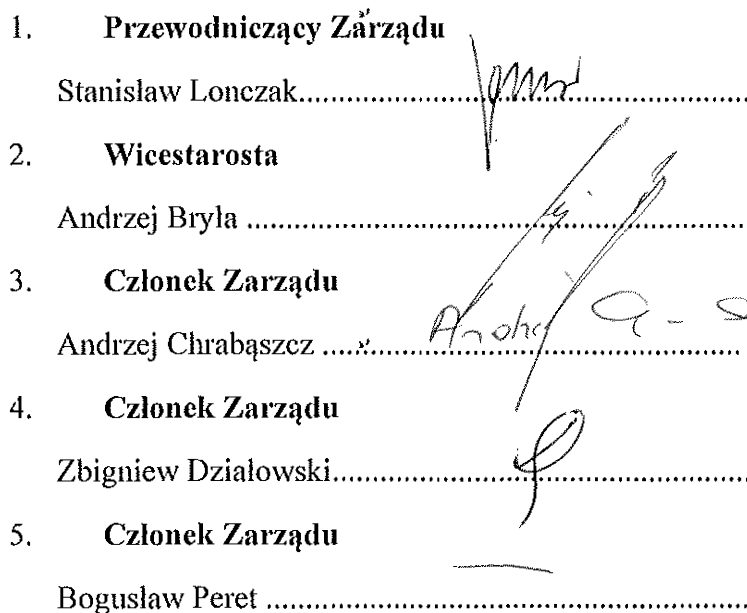 1. Przewodniczący Zarządu
Stanisław Lonczak..............................
2. Wicestarosta
Andrzej Bryła ..............................
3. Członek Zarządu
Andrzej Chrabąszcz ..............................
4. Członek Zarządu
Zbigniew Działowski..............................
5. Członek Zarządu
Bogusław Peret ..............................